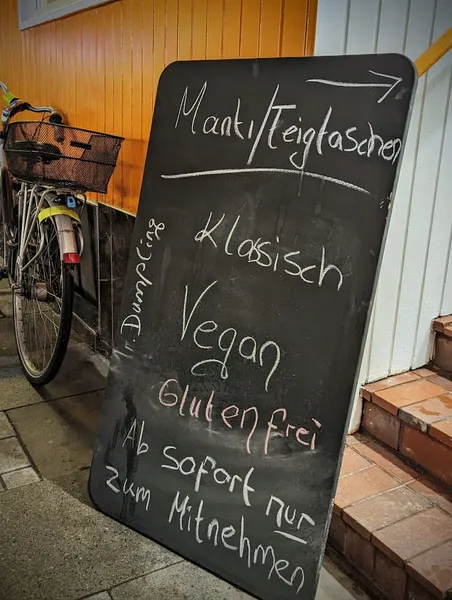 Manti/Teigtaschen
Klassisch
Mr. Dumpling
Vegan
Glutenfrei
Ab sofort nur
zum Mitnehmen